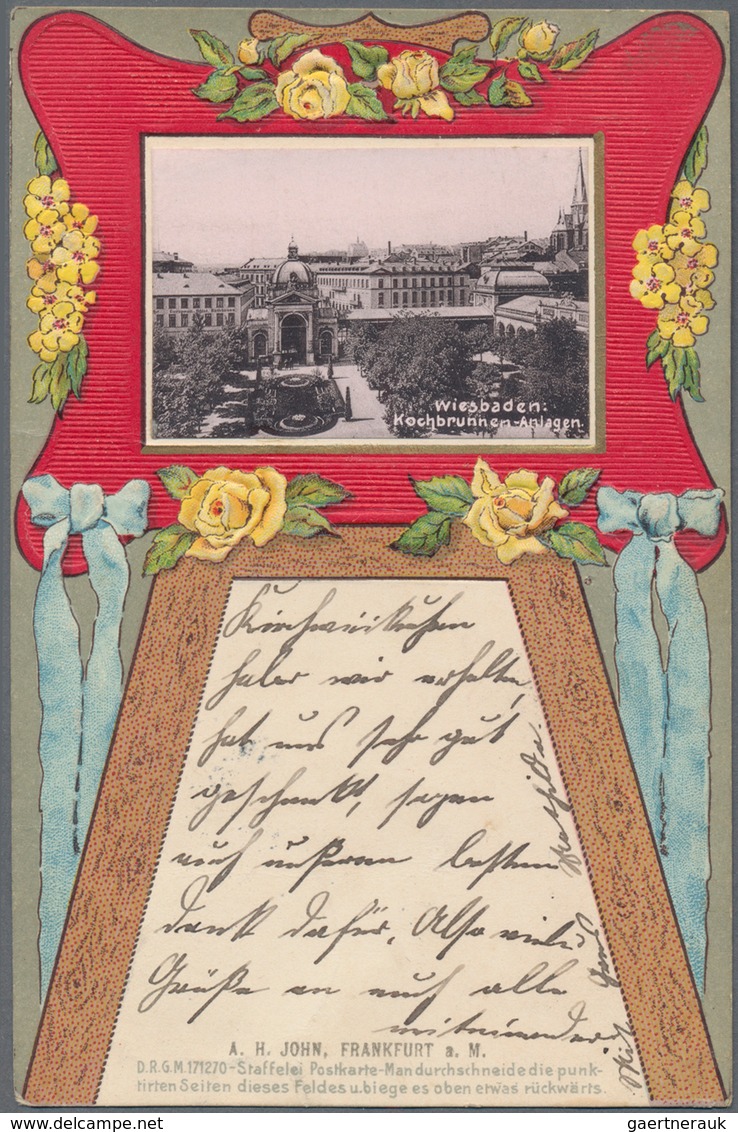 Wiesbaden:
Kochbrunnen-Anlagen.
Kirchweihkuchen
haben wir erhalten,
hat uns sehr gut
geschmekt, sagen
euch unßeren besten
Dank dafür. Also viele
Grüße an euch alle
mitteinander
Mathilde.
A. H. JOHN, FRANKFURT a. M.
D.R.G.M. 171270-Staffelei Postkarte-Man durchschneide die punk-
tirten Seiten dieses Feldes u. biege es oben etwas rückwärts.
gaertnerauk